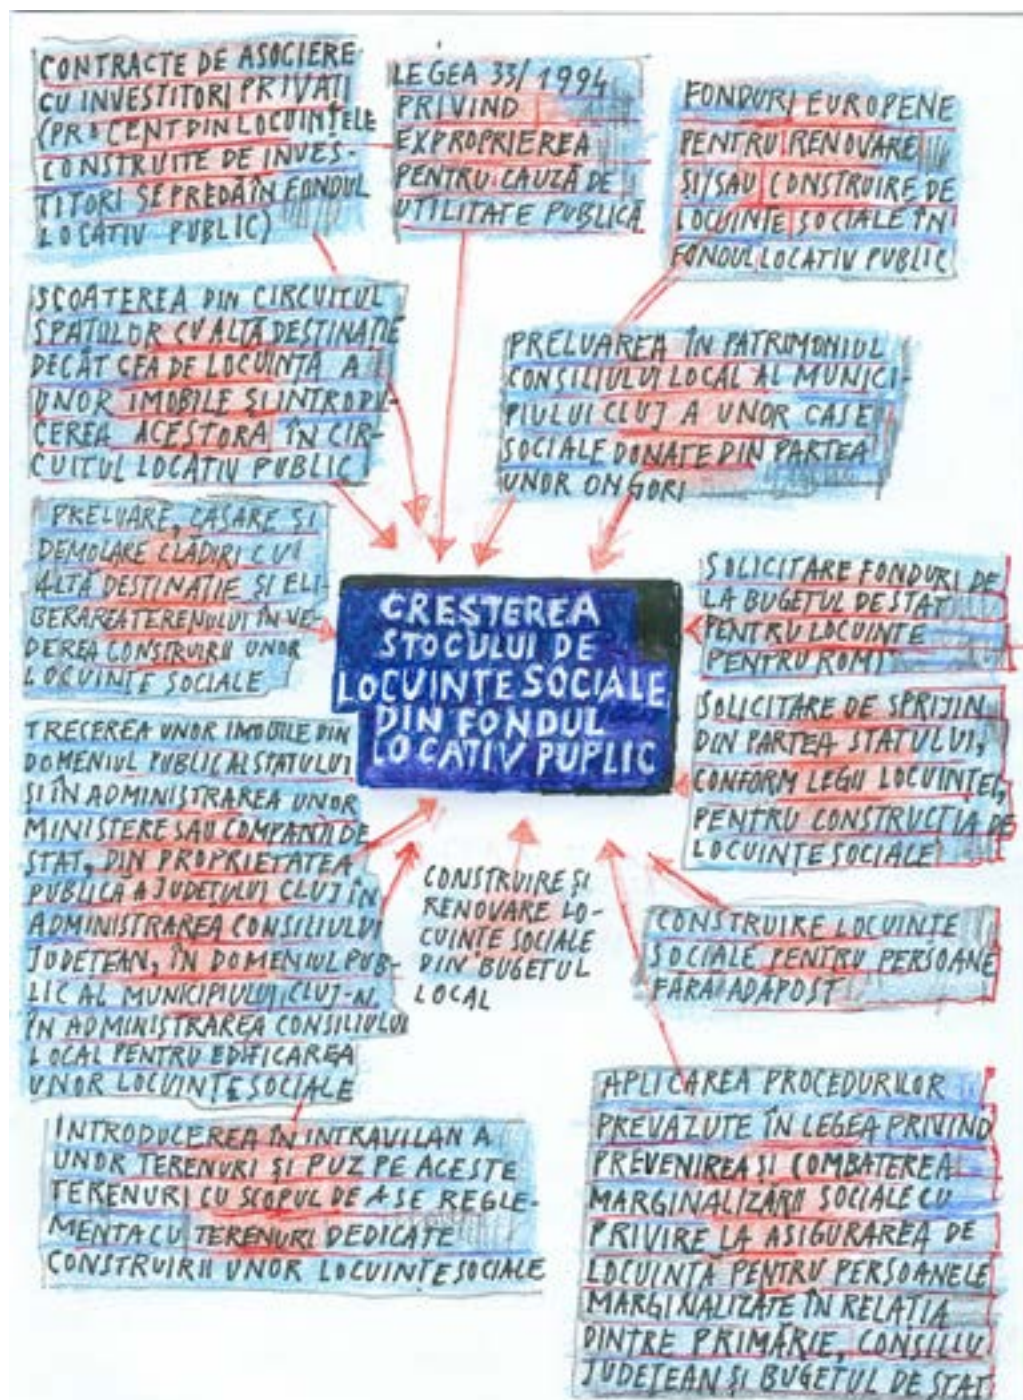 CONTRACTE DE ASOCIERE
CU INVESTITORI PRIVAȚI
(PROCENT DIN LOCUINȚELE
CONSTRUITE DE INVES-
TITORI SE PREDĂ ÎN FONDUL
LOCATIV PUBLIC)
LEGEA 33/1994
PRIVIND
EXPROPRIEREA
PENTRU CAUZĂ DE
UTILITATE PUBLICĂ
FONDURI EUROPENE
PENTRU RENOVARE
ȘI/SAU CONSTRUIRE DE
LOCUINȚE SOCIALE ÎN
FONDUL LOCATIV PUBLIC
SCOATEREA DIN CIRCUITUL
SPAȚIILOR CU ALTĂ DESTINAȚIE
DECÂT CEA DE LOCUINȚĂ A
UNOR IMOBILE ȘI INTRODU-
CEREA ACESTORA ÎN CIR-
CUITUL LOCATIV PUBLIC
PRELUAREA ÎN PATRIMONIUL
CONSILIULUI LOCAL AL MUNICI-
PIULUI CLUJ A UNOR CASE
SOCIALE DONATE DIN PARTEA
UNOR ONGORI
PRELUARE, CASARE ȘI
DEMOLARE CLĂDIRI CU
ALTĂ DESTINAȚIE ȘI ELI-
BERAREA TERENULUI ÎN VE-
DEREA CONSTRUIRII UNOR
LOCUINȚE SOCIALE
CREȘTEREA
STOCULUI DE
LOCUINȚE SOCIALE
DIN FONDUL
LOCATIV PUPLIC
SOLICITARE FONDURI DE
LA BUGETUL DE STAT
PENTRU LOCUINȚE
PENTRU ROMI
SOLICITARE DE SPRIJIN
DIN PARTEA STATULUI,
CONFORM LEGII LOCUINȚEI,
PENTRU CONSTRUCȚIA DE
LOCUINȚE SOCIALE
TRECEREA UNOR IMOBILE DIN
DOMENIUL PUBLIC AL STATULUI
ȘI ÎN ADMINISTRAREA UNOR
MINISTERE SAU COMPANII DE
STAT, DIN PROPRIETATEA
PUBLICA A JUDEȚULUI CLUJ ÎN
ADMINISTRAREA CONSILIULUI
JUDEȚEAN, ÎN DOMENIUL PUB-
LIC AL MUNICIPIULUI CLUJ-N.
ÎN ADMINISTRAREA CONSILIULUI
LOCAL PENTRU EDIFICAREA
UNOR LOCUINȚE SOCIALE
CONSTRUIRE ȘI
RENOVARE LO-
CUINȚE SOCIALE
DIN BUGETUL
LOCAL
CONSTRUIRE LOCUINȚE
SOCIALE PENTRU PERSOANE
FĂRĂ ADAPOST
INTRODUCEREA ÎN INTRAVILAN A
UNOR TERENURI ȘI PUZ PE ACESTE
TERENURI CU SCOPUL DE A SE REGLE-
MENTA CU TERENURI DEDICATE
CONSTRUIRII UNOR LOCUINȚE SOCIALE
APLICAREA PROCEDURILOR
PREVAZUTE ÎN LEGEA PRIVIND
PREVENIREA ȘI COMBATEREA
MARGINALIZĂRII SOCIALE CU
PRIVIRE LA ASIGURAREA DE
LOCUINȚĂ PENTRU PERSOANELE
MARGINALIZATE ÎN RELAȚIA
DINTRE PRIMĂRIE, CONSILIU
JUDEȚEAN ȘI BUGETUL DE STAT